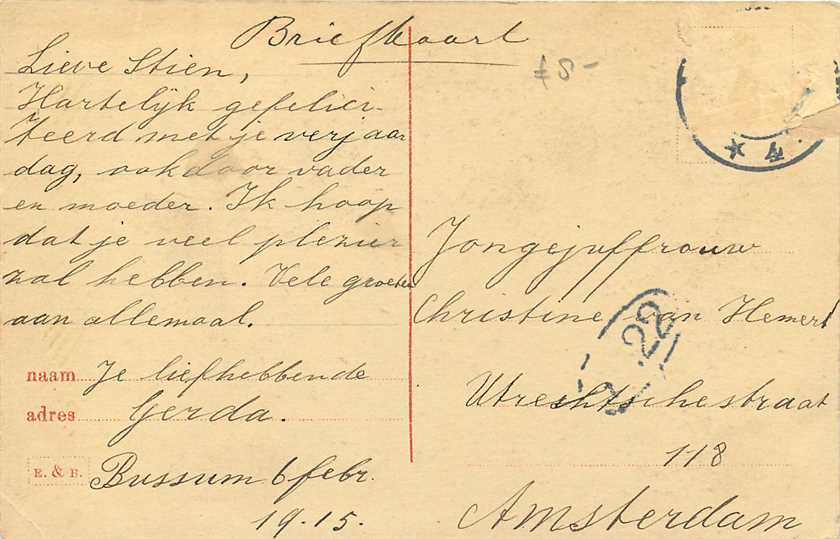 Briefkaart
Lieve Stien,
Hartelijk gefelici-
teerd met je verjaar
dag, ook door vader
en moeder. Ik hoop
dat je veel plezier
zal hebben. Vele groeten
aan allemaal.
naam Je liefhebbende
adres Gerda.
E. & B. Bussum 6 febr.
19.15.
Jongejuffrouw
Christine van Hemert
Utrechtschestraat
118
Amsterdam